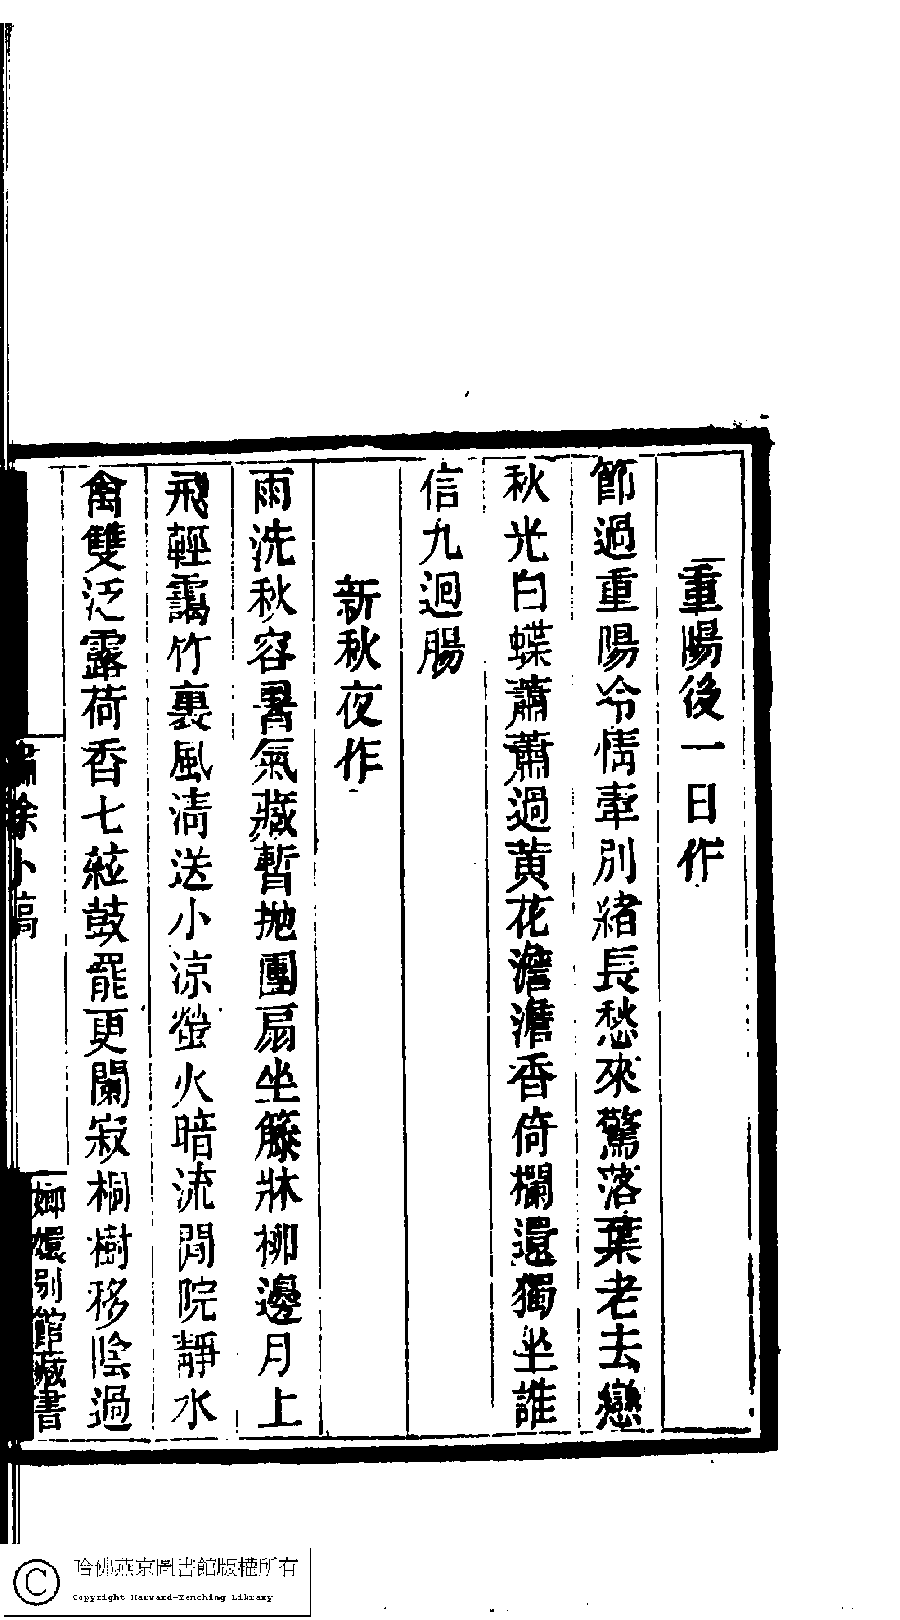 重陽後一日作
節過重陽冷情牽別緒長愁來驚落葉老去戀
秋光白蝶蕭蕭過黃花澹澹香倚欄還獨坐誰
信九迴腸
新秋夜作
雨洗秋容暑氣藏暫抛團扇坐籐牀柳邊月上
飛輕靄竹裏風清送小涼螢火暗流閒院靜水
禽雙泛露荷香七菘鼓罷更闌寂桐樹移陰過
餘小稿
嫏嬛別館藏書
哈佛燕京圖書館版權所有
Copyright Harvard-Yenching Library